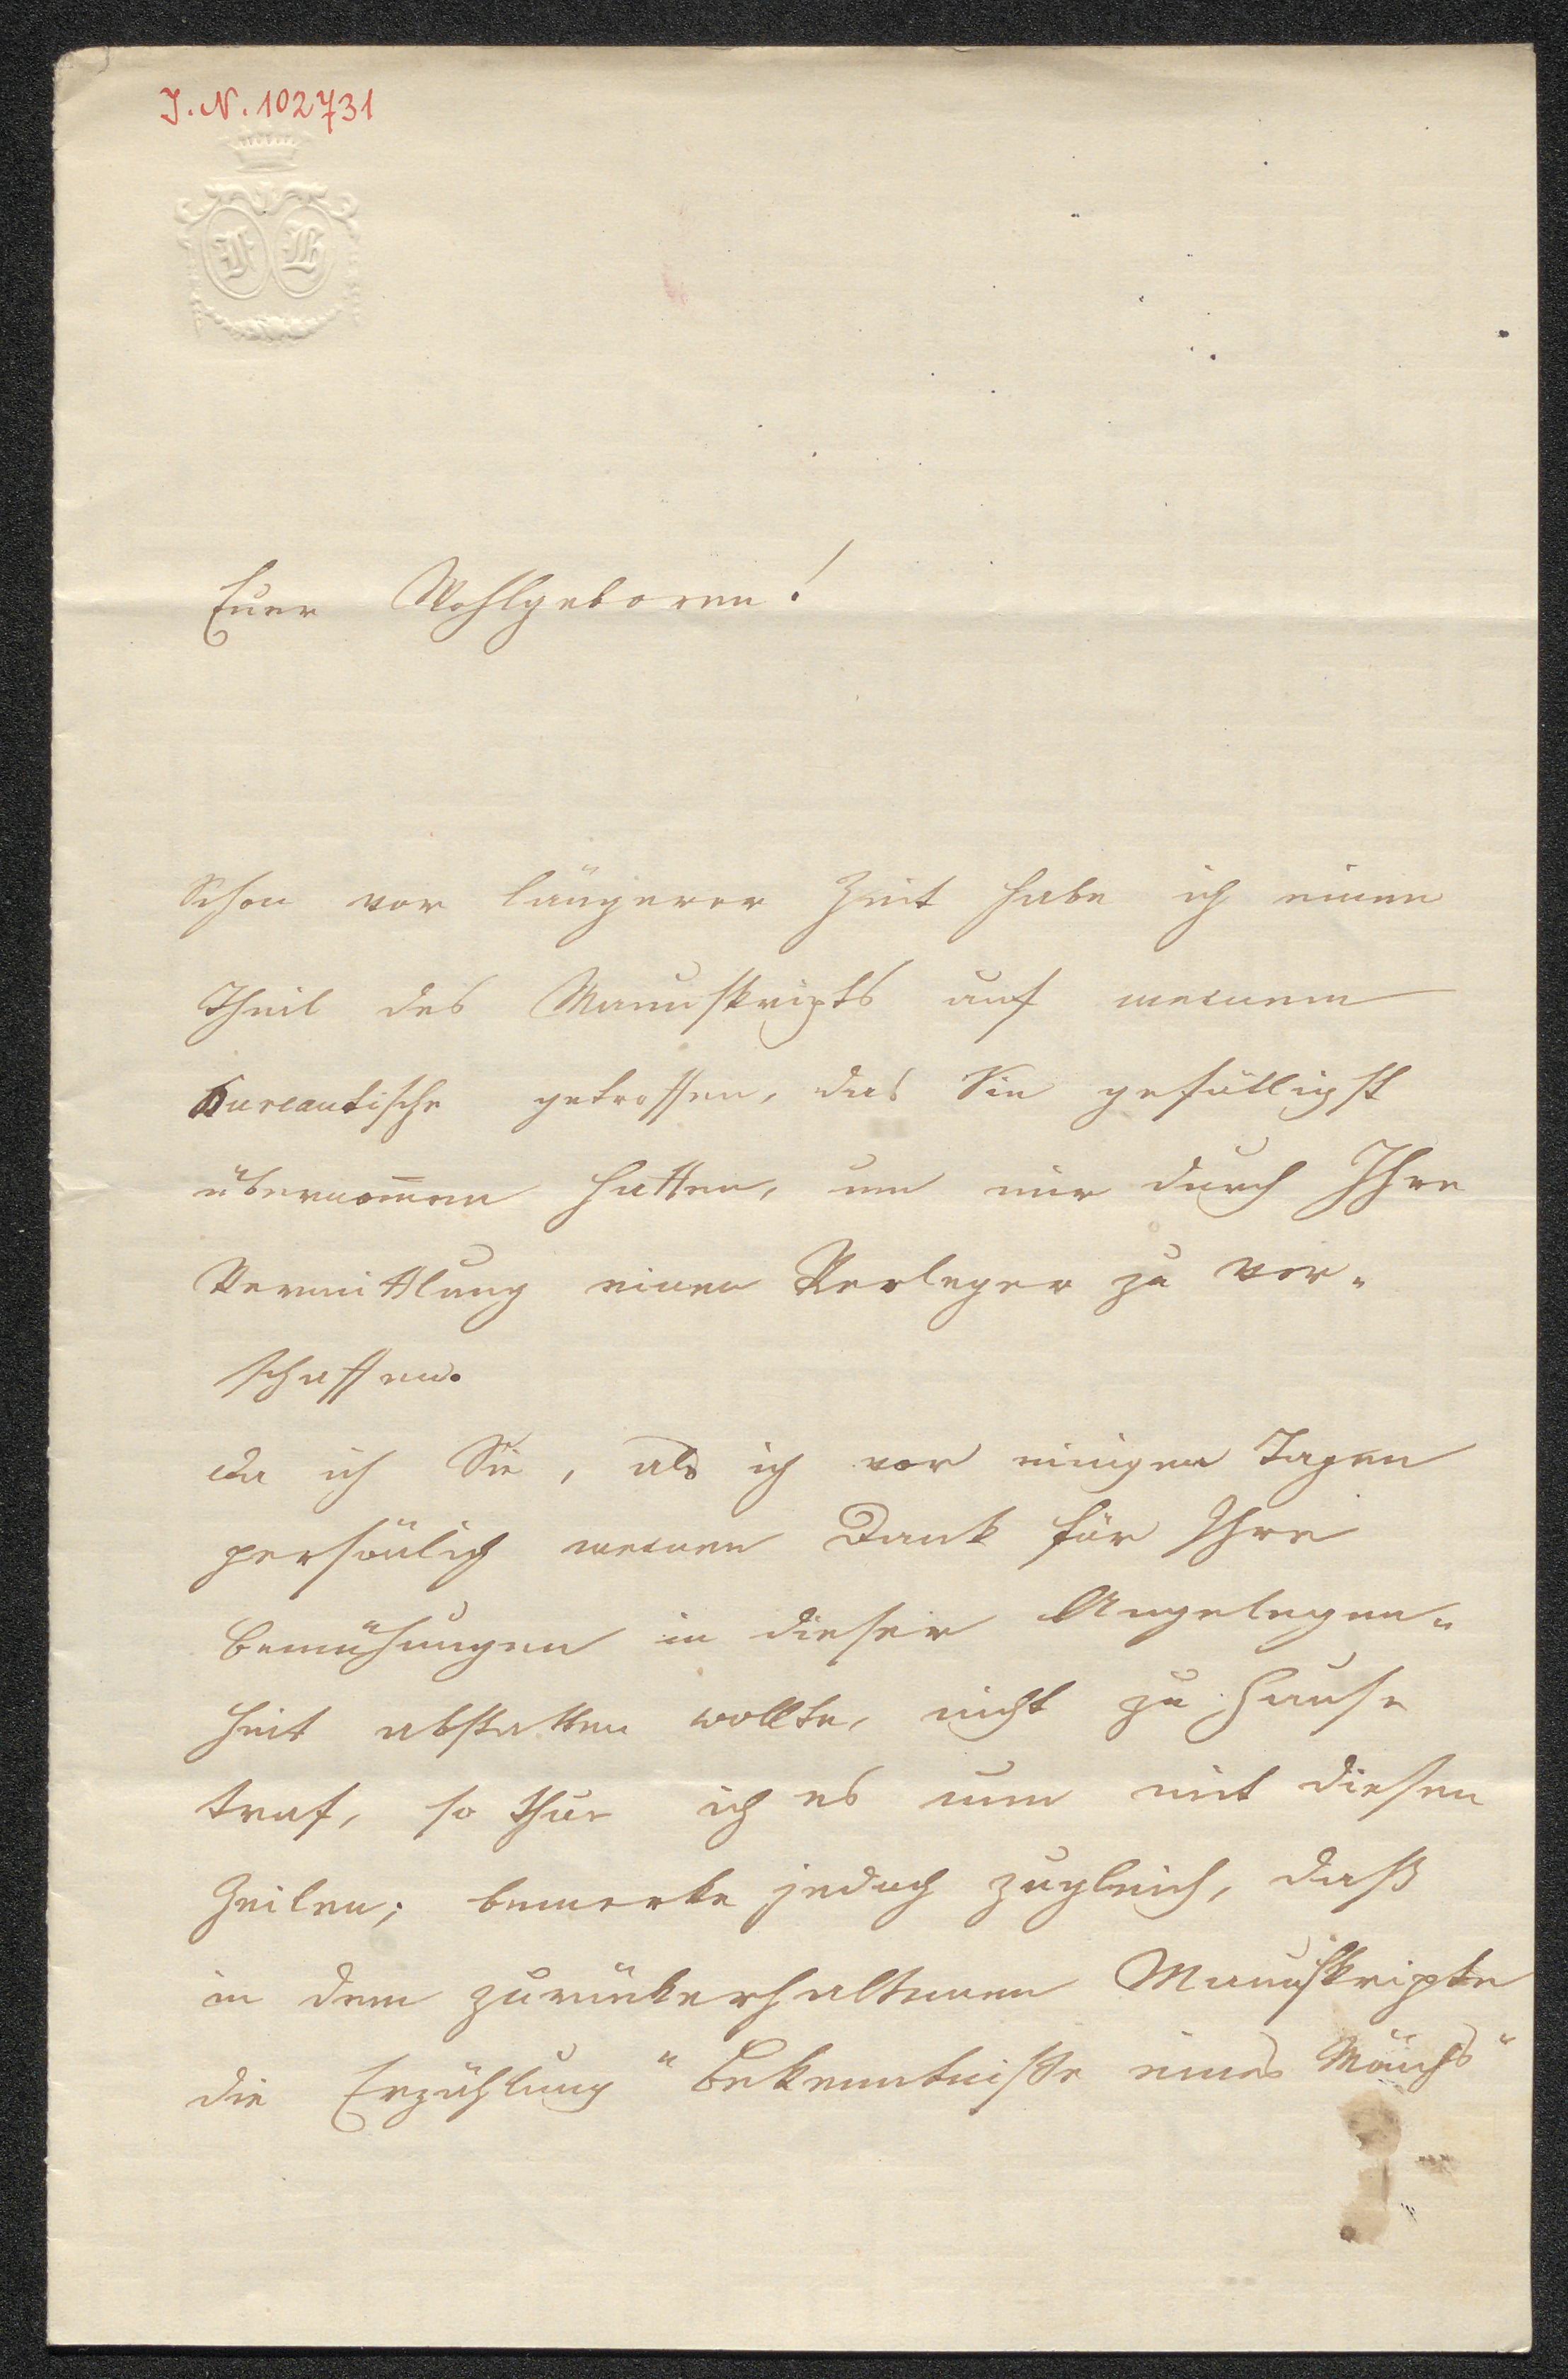 J. N. 102731
F B
Euer Wohlgeboren!
Schon vor längerer Zeit habe ich einen
Theil des Manuskripts auf meinem
Bureautische getroffen, das Sie gefälligst
übernom̅en hatten, um mir durch Ihre
Vermittlung einen Verleger zu ver-
schaffen.
Da ich Sie, als ich vor einigen Tagen
persönlich meinen Dank für Ihre
Bemühungen in dieser Angelegen-
heit abstatten wollte, nicht zu Hause
traf, so thue ich es nun mit diesen
Zeilen; bemerke jedoch zugleich, daß
in dem zurückerhaltenen Manuskripte
die Erzählung "Bekenntniße eines Mönchs"